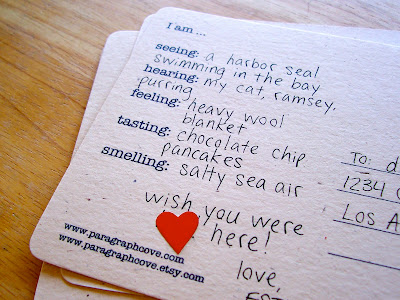 I am ...
seeing: a harbor seal
swimming in the bay
hearing: my cat, ramsey,
purring
feeling: heavy wool
blanket
tasting: chocolate chip
pancakes
smelling: salty sea air
wish you were
here!
love,
www.paragraphcove.com
www.paragraphcove.etsy.com
TO: d
1234 C
Los A